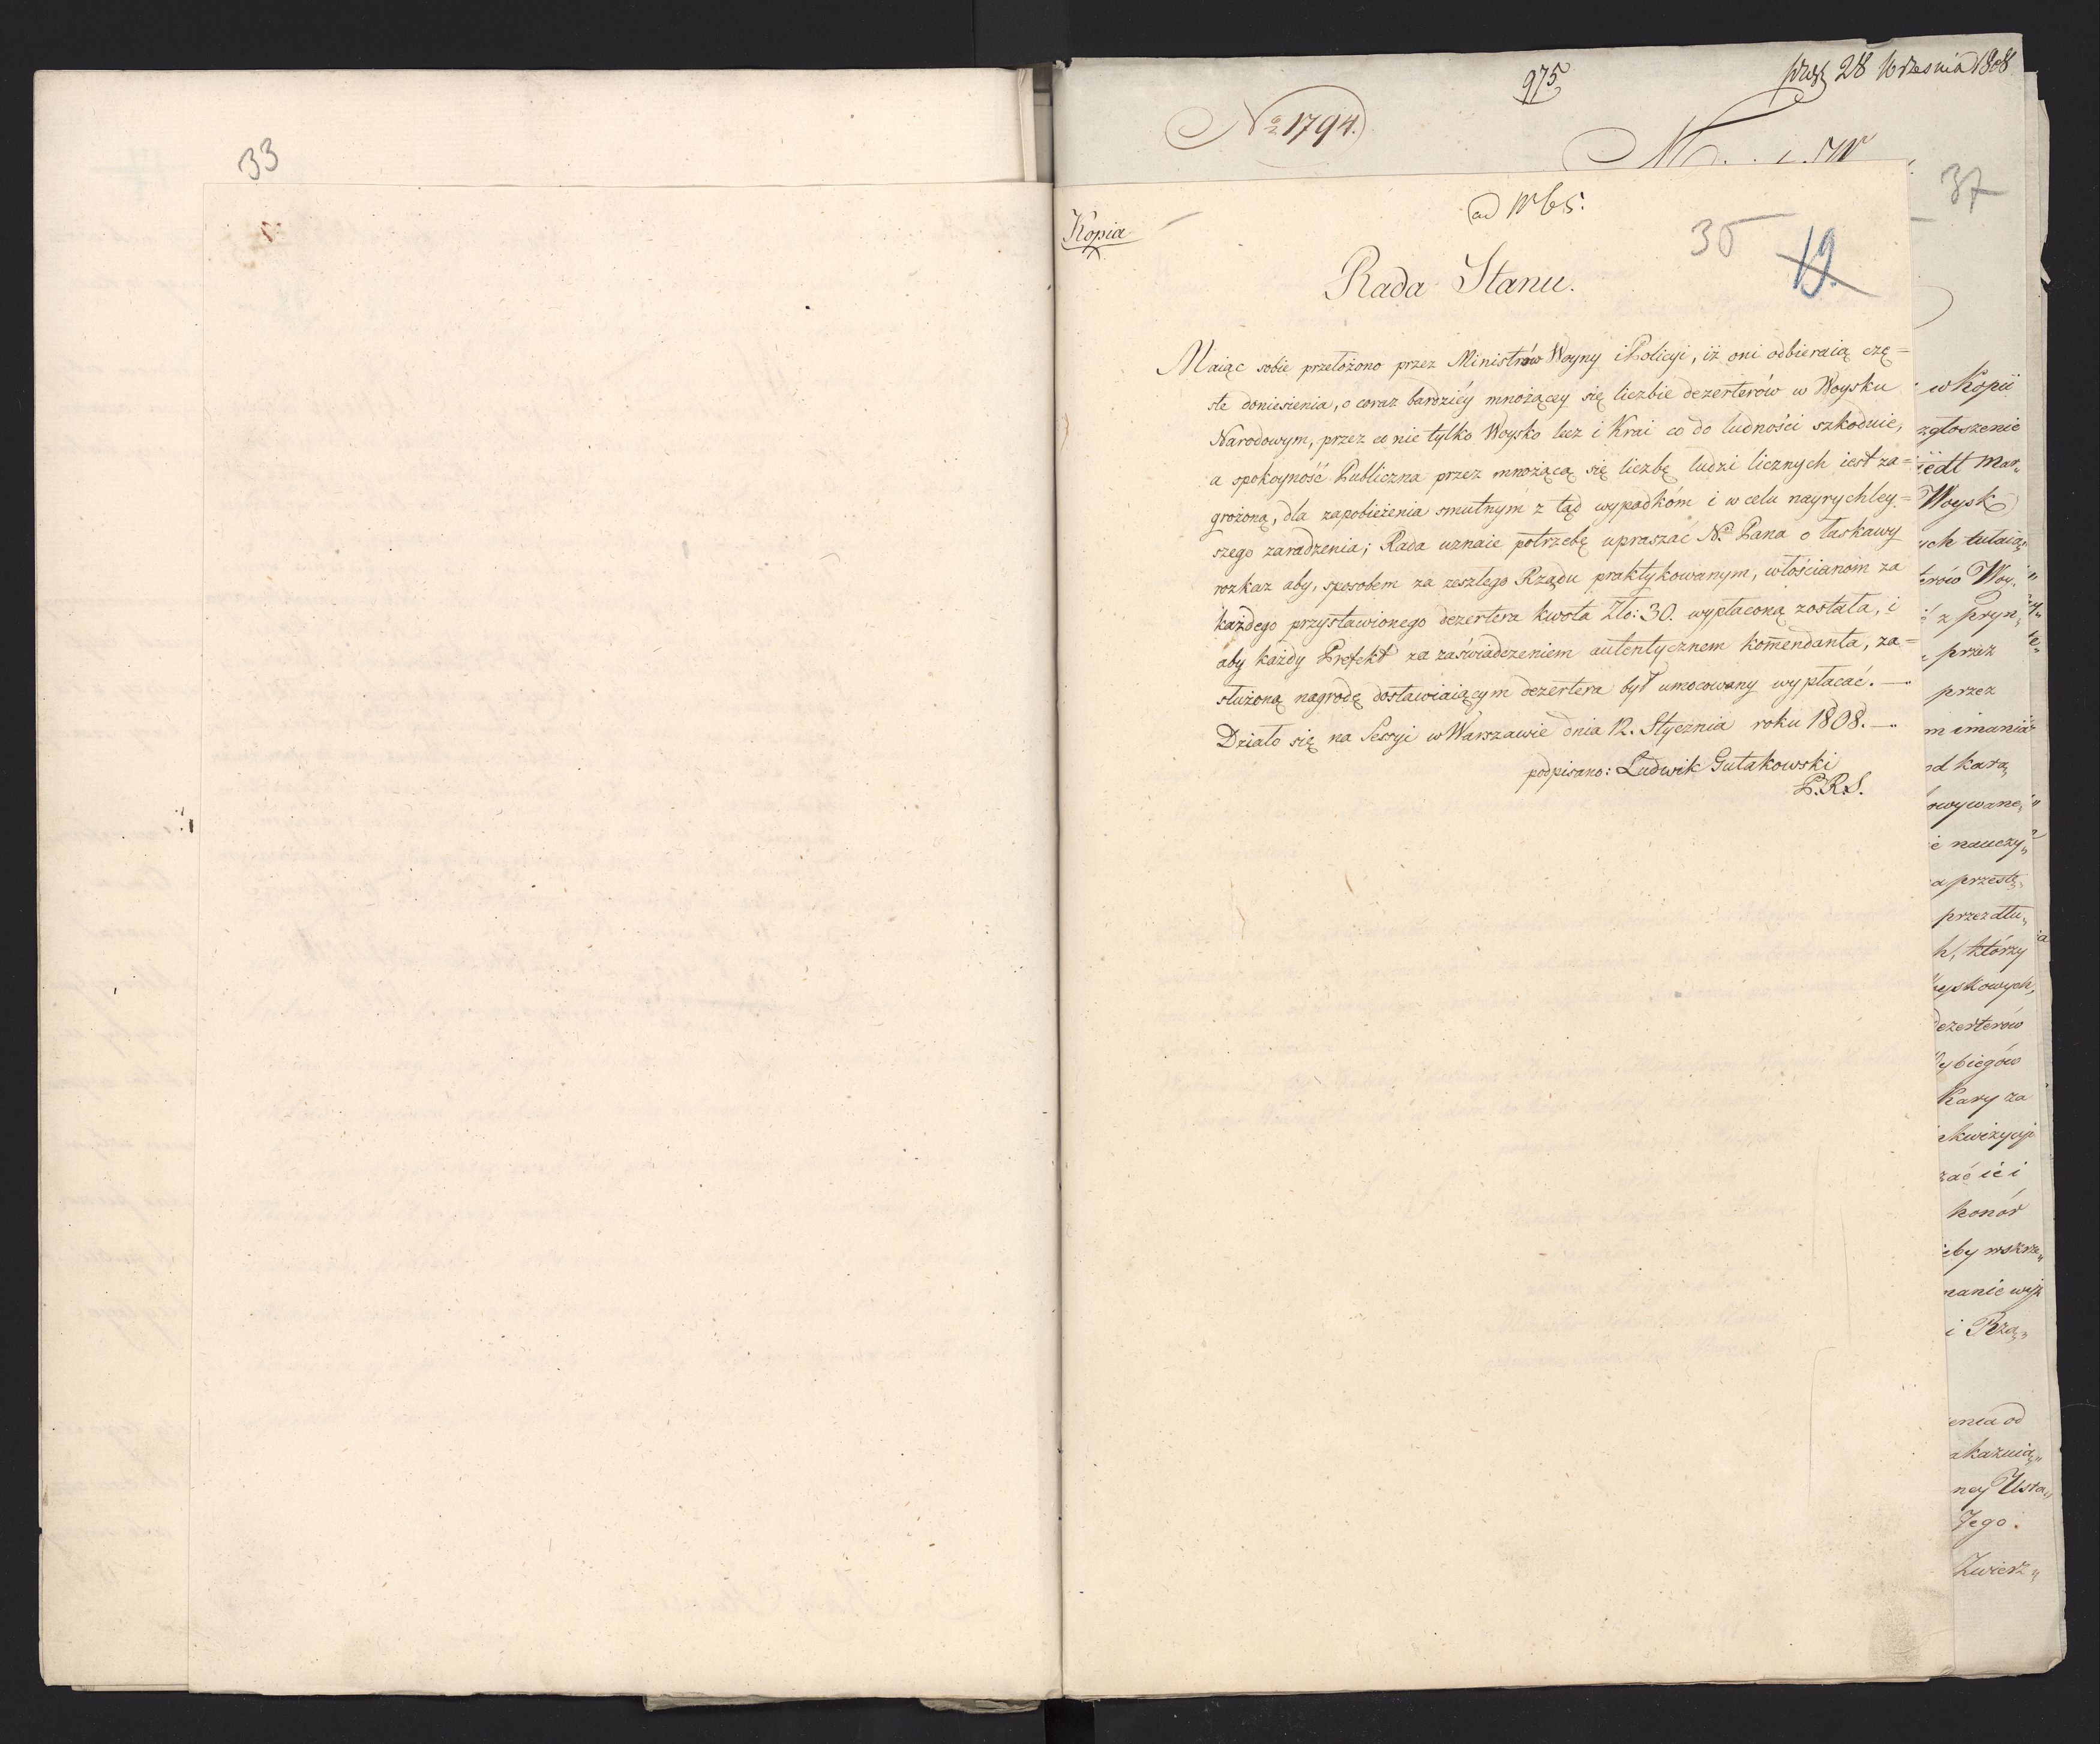 33
975
prez 28 Września 1808
No 1794.
37
ad No 65.
Kopia
35
19.
Rada Stanu.
Maiąc sobie przełożono przez Ministrów Woyny i Policyi, iż oni odbieraią czę=
ste doniesienia, o coraz bardziéy mnożącey się liczbie dezerterów w Woysku
Narodowym, przez co nie tylko Woysko lecz i Krai co do ludności szkoduie,
a spokoyność Publiczna przez mnożącą się liczbę ludzi licznych iest za=
grożoną, dla zapobieżenia smutnym z tąd wypadkóm i w celu nayrychley=
szego zaradzenia; Rada uznaie potrzebę upraszać N. Pana o łaskawy
rozkaz aby, sposobem za zeszłego Rządu praktykowanym, włościanom za
każdego przystawionego dezertera kwota Zło: 30. wypłaconą została, i
aby każdy Prefekt za zaświadczeniem autentycznem kom̄endanta, za=
służoną nagrodę dostawiaiącym dezertera był umocowany wypłacać. —
Działo się na Sessyi w Warszawie dnia 12. Stycznia roku 1808. —
podpisano: Ludwik Gutakowski
P.R.S.
w Kopii
zgłoszenie
Mar„
Woysk
ych tutaią„
terów Woy„
z pryn„
przez
przez
m imania
od kara„
owywane„
nauczy„
a przestę„
przez dłu„
h, którzy
oyskowych,
dezerterów
ybiegów
Kary za
ekwizycyi
zać ié i
honór
eby wskrze„
nanie wyż
i Rzą„
enia od
akazuią„
ney Usta„
Jego.
Zwierz„